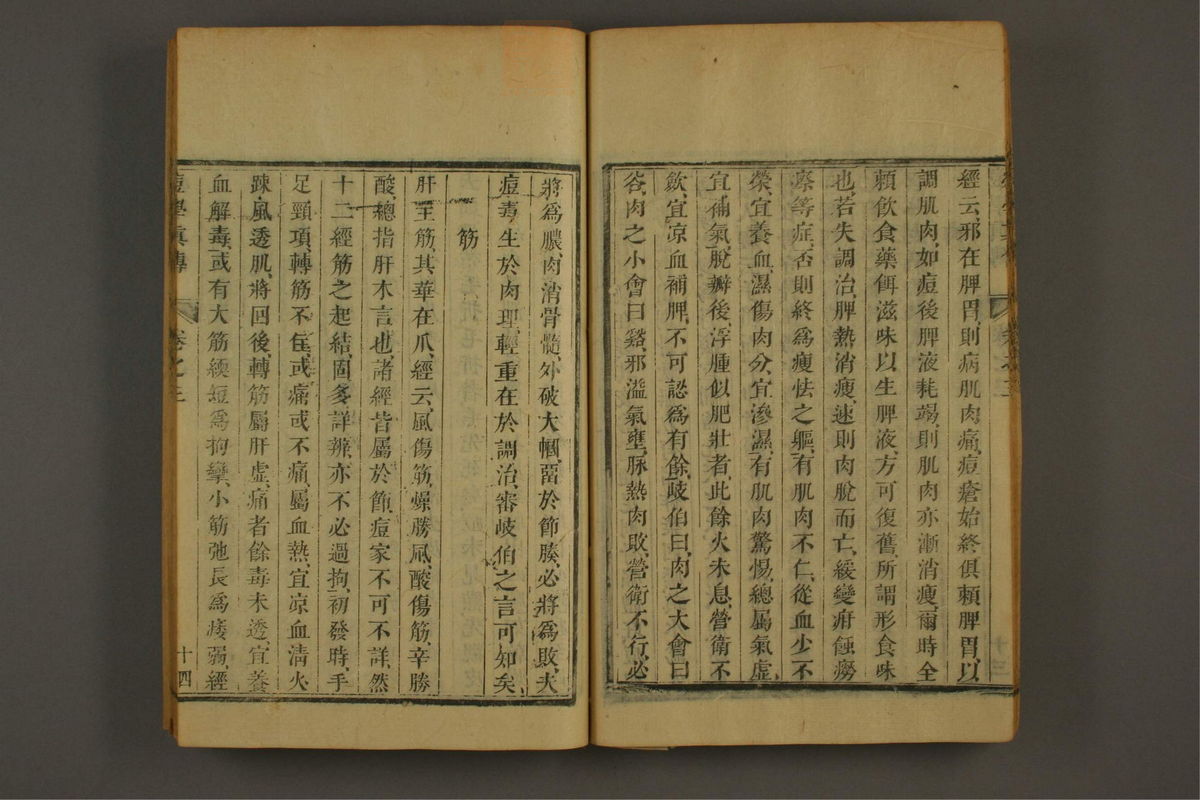 經云、邪在脾胃、則病肌肉痛、痘瘡始終俱賴脾胃、以
調肌肉、如痘後脾液耗竭、則肌肉亦漸消瘦、爾時全
賴飲食藥餌滋味、以生脾液、方可復舊、所謂形食味
也、若失調治、脾熱消瘦、速則肉脫而亡、緩變疳蝕癆
瘵等症、否則終爲瘦怯之軀、有肌肉不仁、從血少不
榮、宜養血、濕傷肉分、宜滲濕、有肌肉驚惕、總屬氣虛、
宜補氣、脫瓣後、浮腫似肥壯者、此餘火未息、營衛不
歛、宜凉血補脾、不可認爲有餘、歧伯曰、肉之大會曰
谷、肉之小會曰谿、邪溢氣壅、脉熱肉敗、營衛不行、必
十三
將爲膿、肉消骨髓、外破大膕、留於節腠、必將爲敗、夫
痘毒、生於肉理、輕重在於調治、審歧伯之言可知矣、
筋
肝主筋、其華在爪、經云、風傷筋、燥勝風、酸傷筋、辛勝
酸、總指肝木言也、諸經皆屬於節、痘家不可不詳、然
十二經筋之起結、固多詳辨、亦不必過拘、初發時、手
足頸項、轉筋不在、或痛或不痛、屬血熱、宜凉血清火
踈風透肌、將回後、轉筋屬肝虛、痛者餘毒未透、宜養
血解毒、或有大筋緛短爲拘攣、小筋弛長爲痿弱、經
痘學眞傳
卷之三
十四